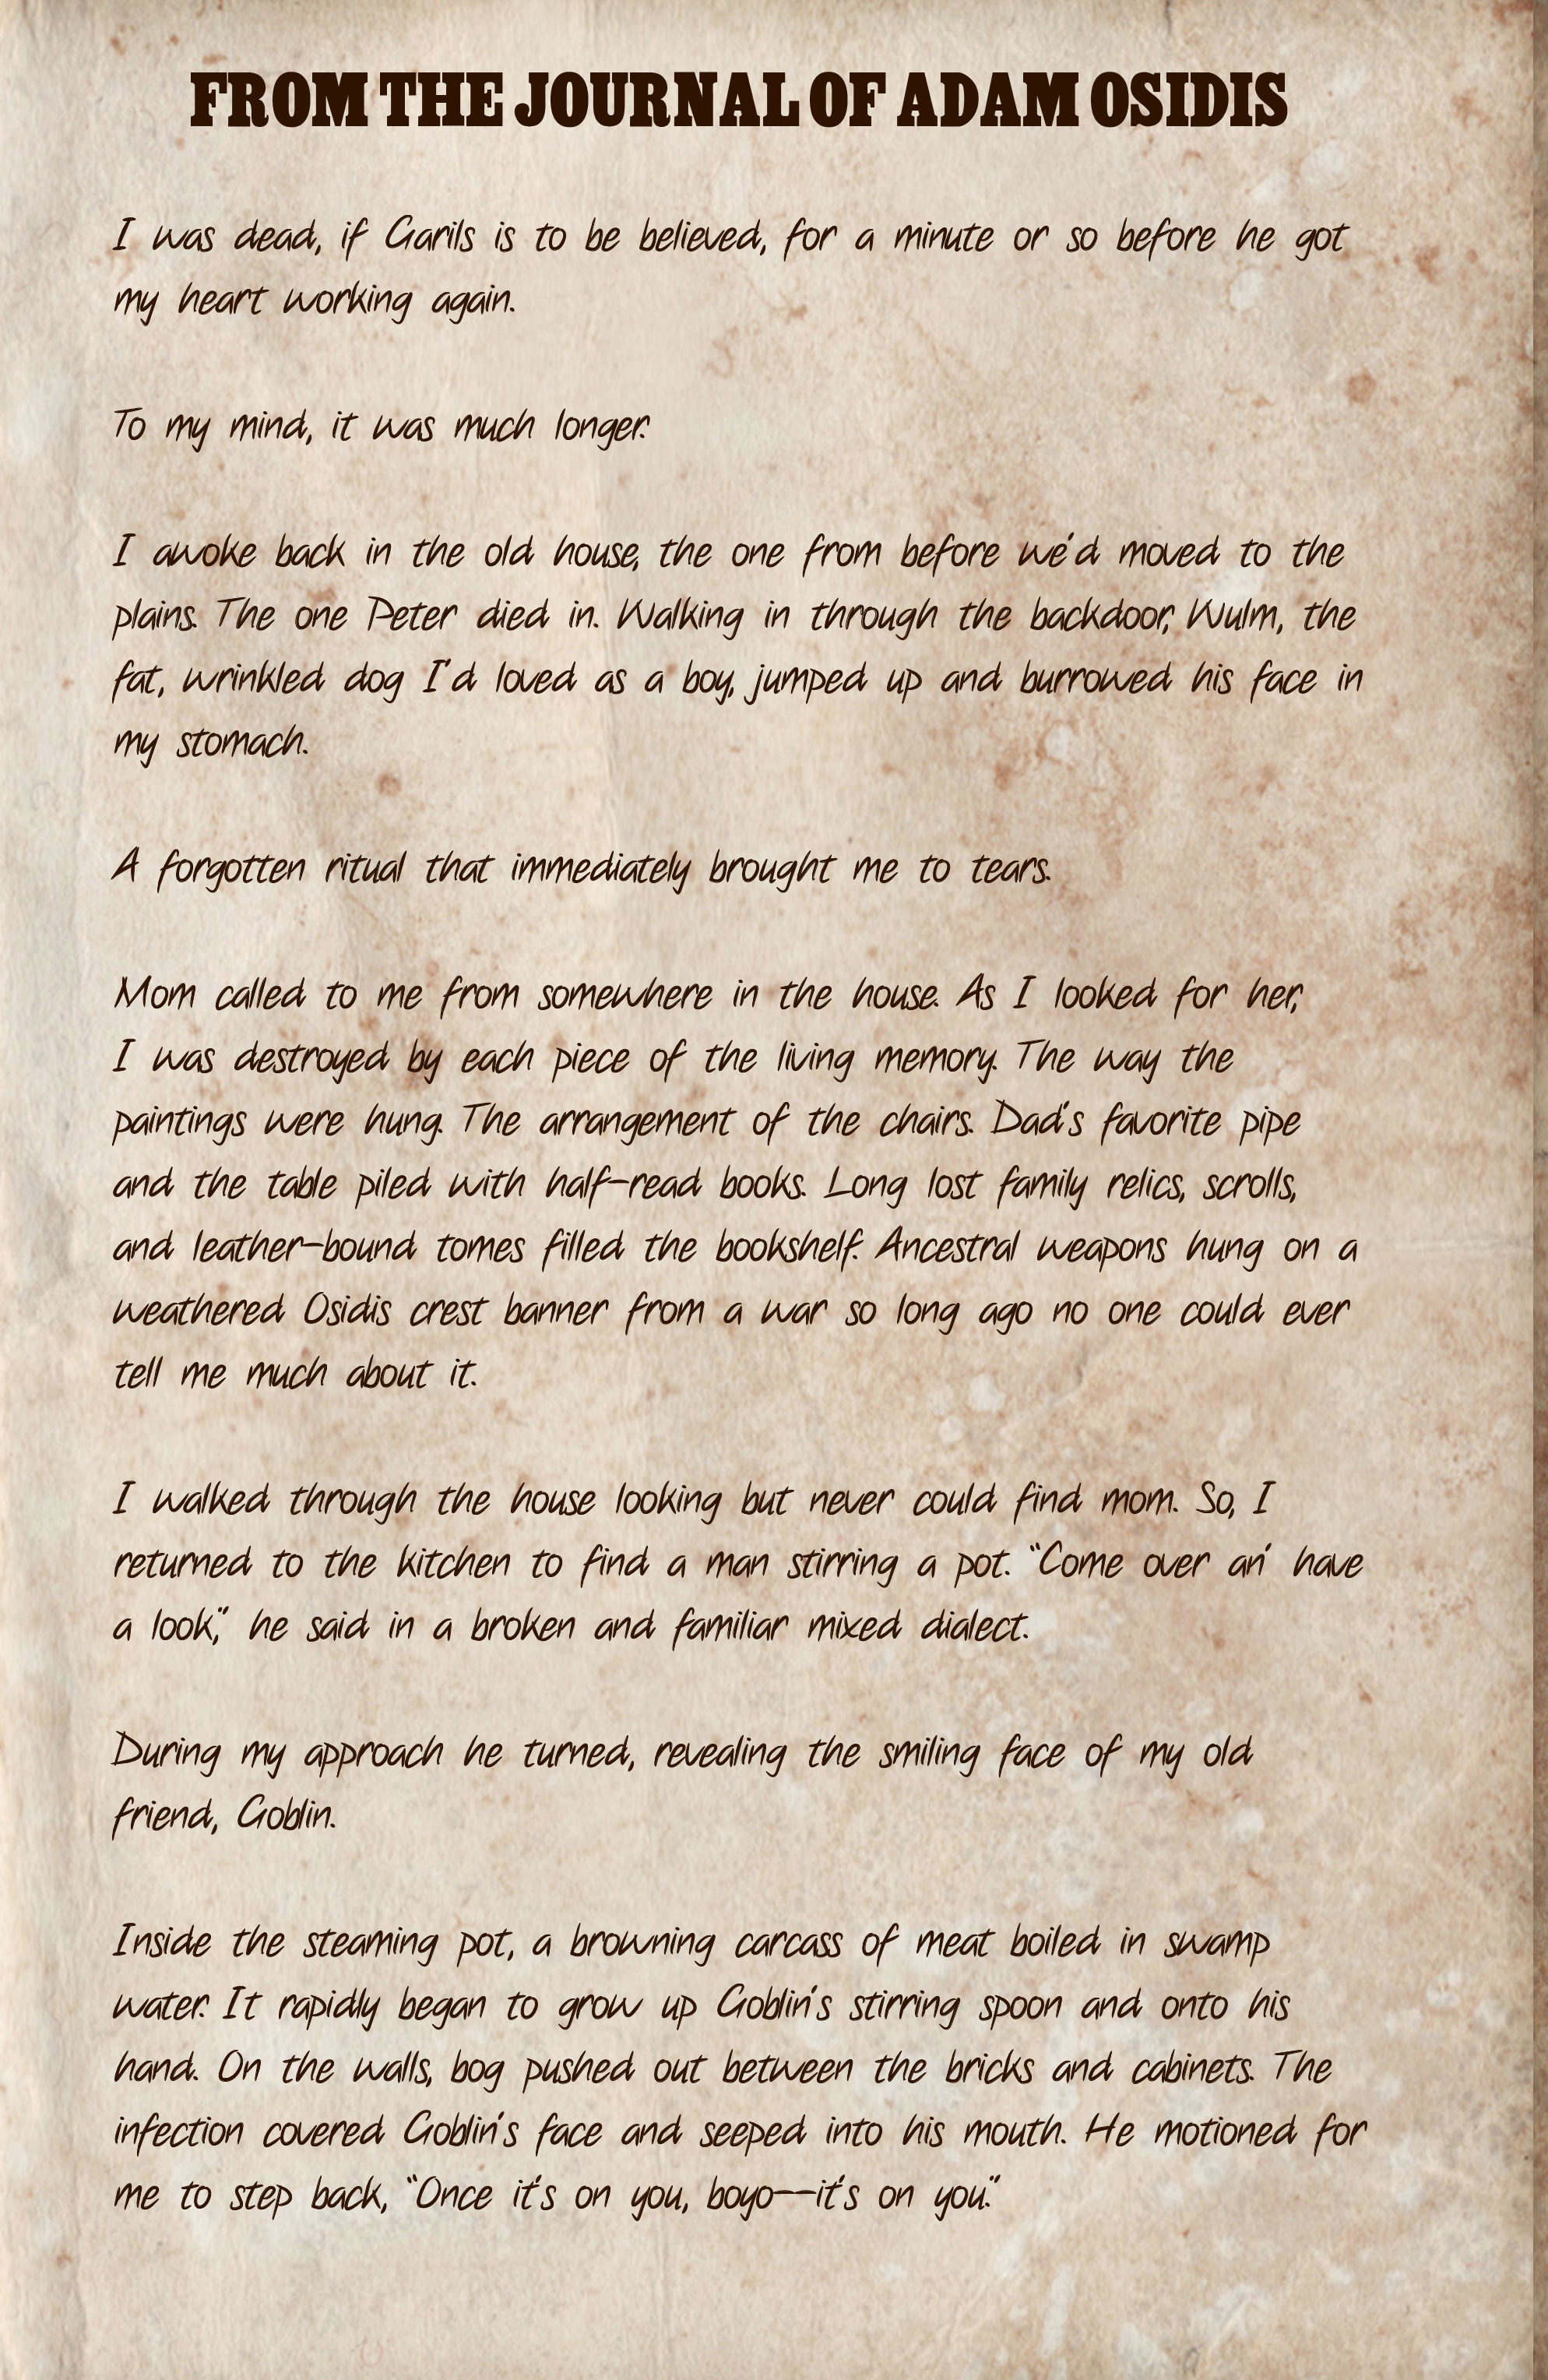 FROM THE JOURNAL OF ADAM OSIDIS
I was dead, if Garils is to be believed, for a minute or so before he got
my heart working again.
To my mind, it was much longer.
I awoke back in the old house, the one from before we'd moved to the
plains. The one Peter died in. Walking in through the backdoor, Wulm, the
fat, wrinkled dog I'd loved as a boy, jumped up and burrowed his face in
my stomach.
A forgotten ritual that immediately brought me to tears.
Mom called to me from somewhere in the house. As I looked for her,
I was destroyed by each piece of the living memory. The way the
paintings were hung. The arrangement of the chairs. Dad's favorite pipe
and the table piled with half-read books. Long lost family relics, scrolls,
and leather-bound tomes filled the bookshelf. Ancestral weapons hung on a
weathered Osidis crest banner from a war so long ago no one could ever
tell me much about it.
I walked through the house looking but never could find mom. So, I
returned to the kitchen to find a man stirring a pot. "Come over an' have
a look," he said in a broken and familiar mixed dialect.
During my approach he turned, revealing the smiling face of my old
friend, Goblin.
Inside the steaming pot, a browning carcass of meat boiled in swamp
water. It rapidly began to grow up Goblin's stirring spoon and onto his
hand. On the walls, bog pushed out between the bricks and cabinets. The
infection covered Goblin's face and seeped into his mouth. He motioned for
me to step back, "Once it's on you, boyo--it's on you."